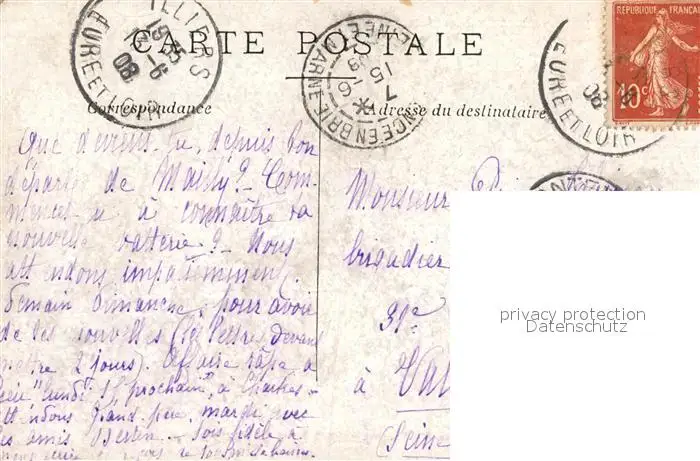 CARTE POSTALE
Correspondance
Adresse du destinataire
ILLIERS
EURE ET LOIR
08
EN BRIE
15
7
08
EURE ET LOIR
08
REPUBLIQUE FRANÇAISE
10c
Que deviens-tu, depuis ton
départ de Mailly? - Com-
mences-tu à connaître ta
nouvelle batterie? - Nous
attendons impatiemment
demain dimanche, pour avoir
de tes nouvelles (les lettres devant
mettre 2 jours). Affaire papa a
"lundi 15 prochain", à Chartres -
attendons grand père, mardi avec
les amis
Sois fidèle à
Monsieur
brigadier
31e
à Val
(Seine
privacy protection
Datenschutz